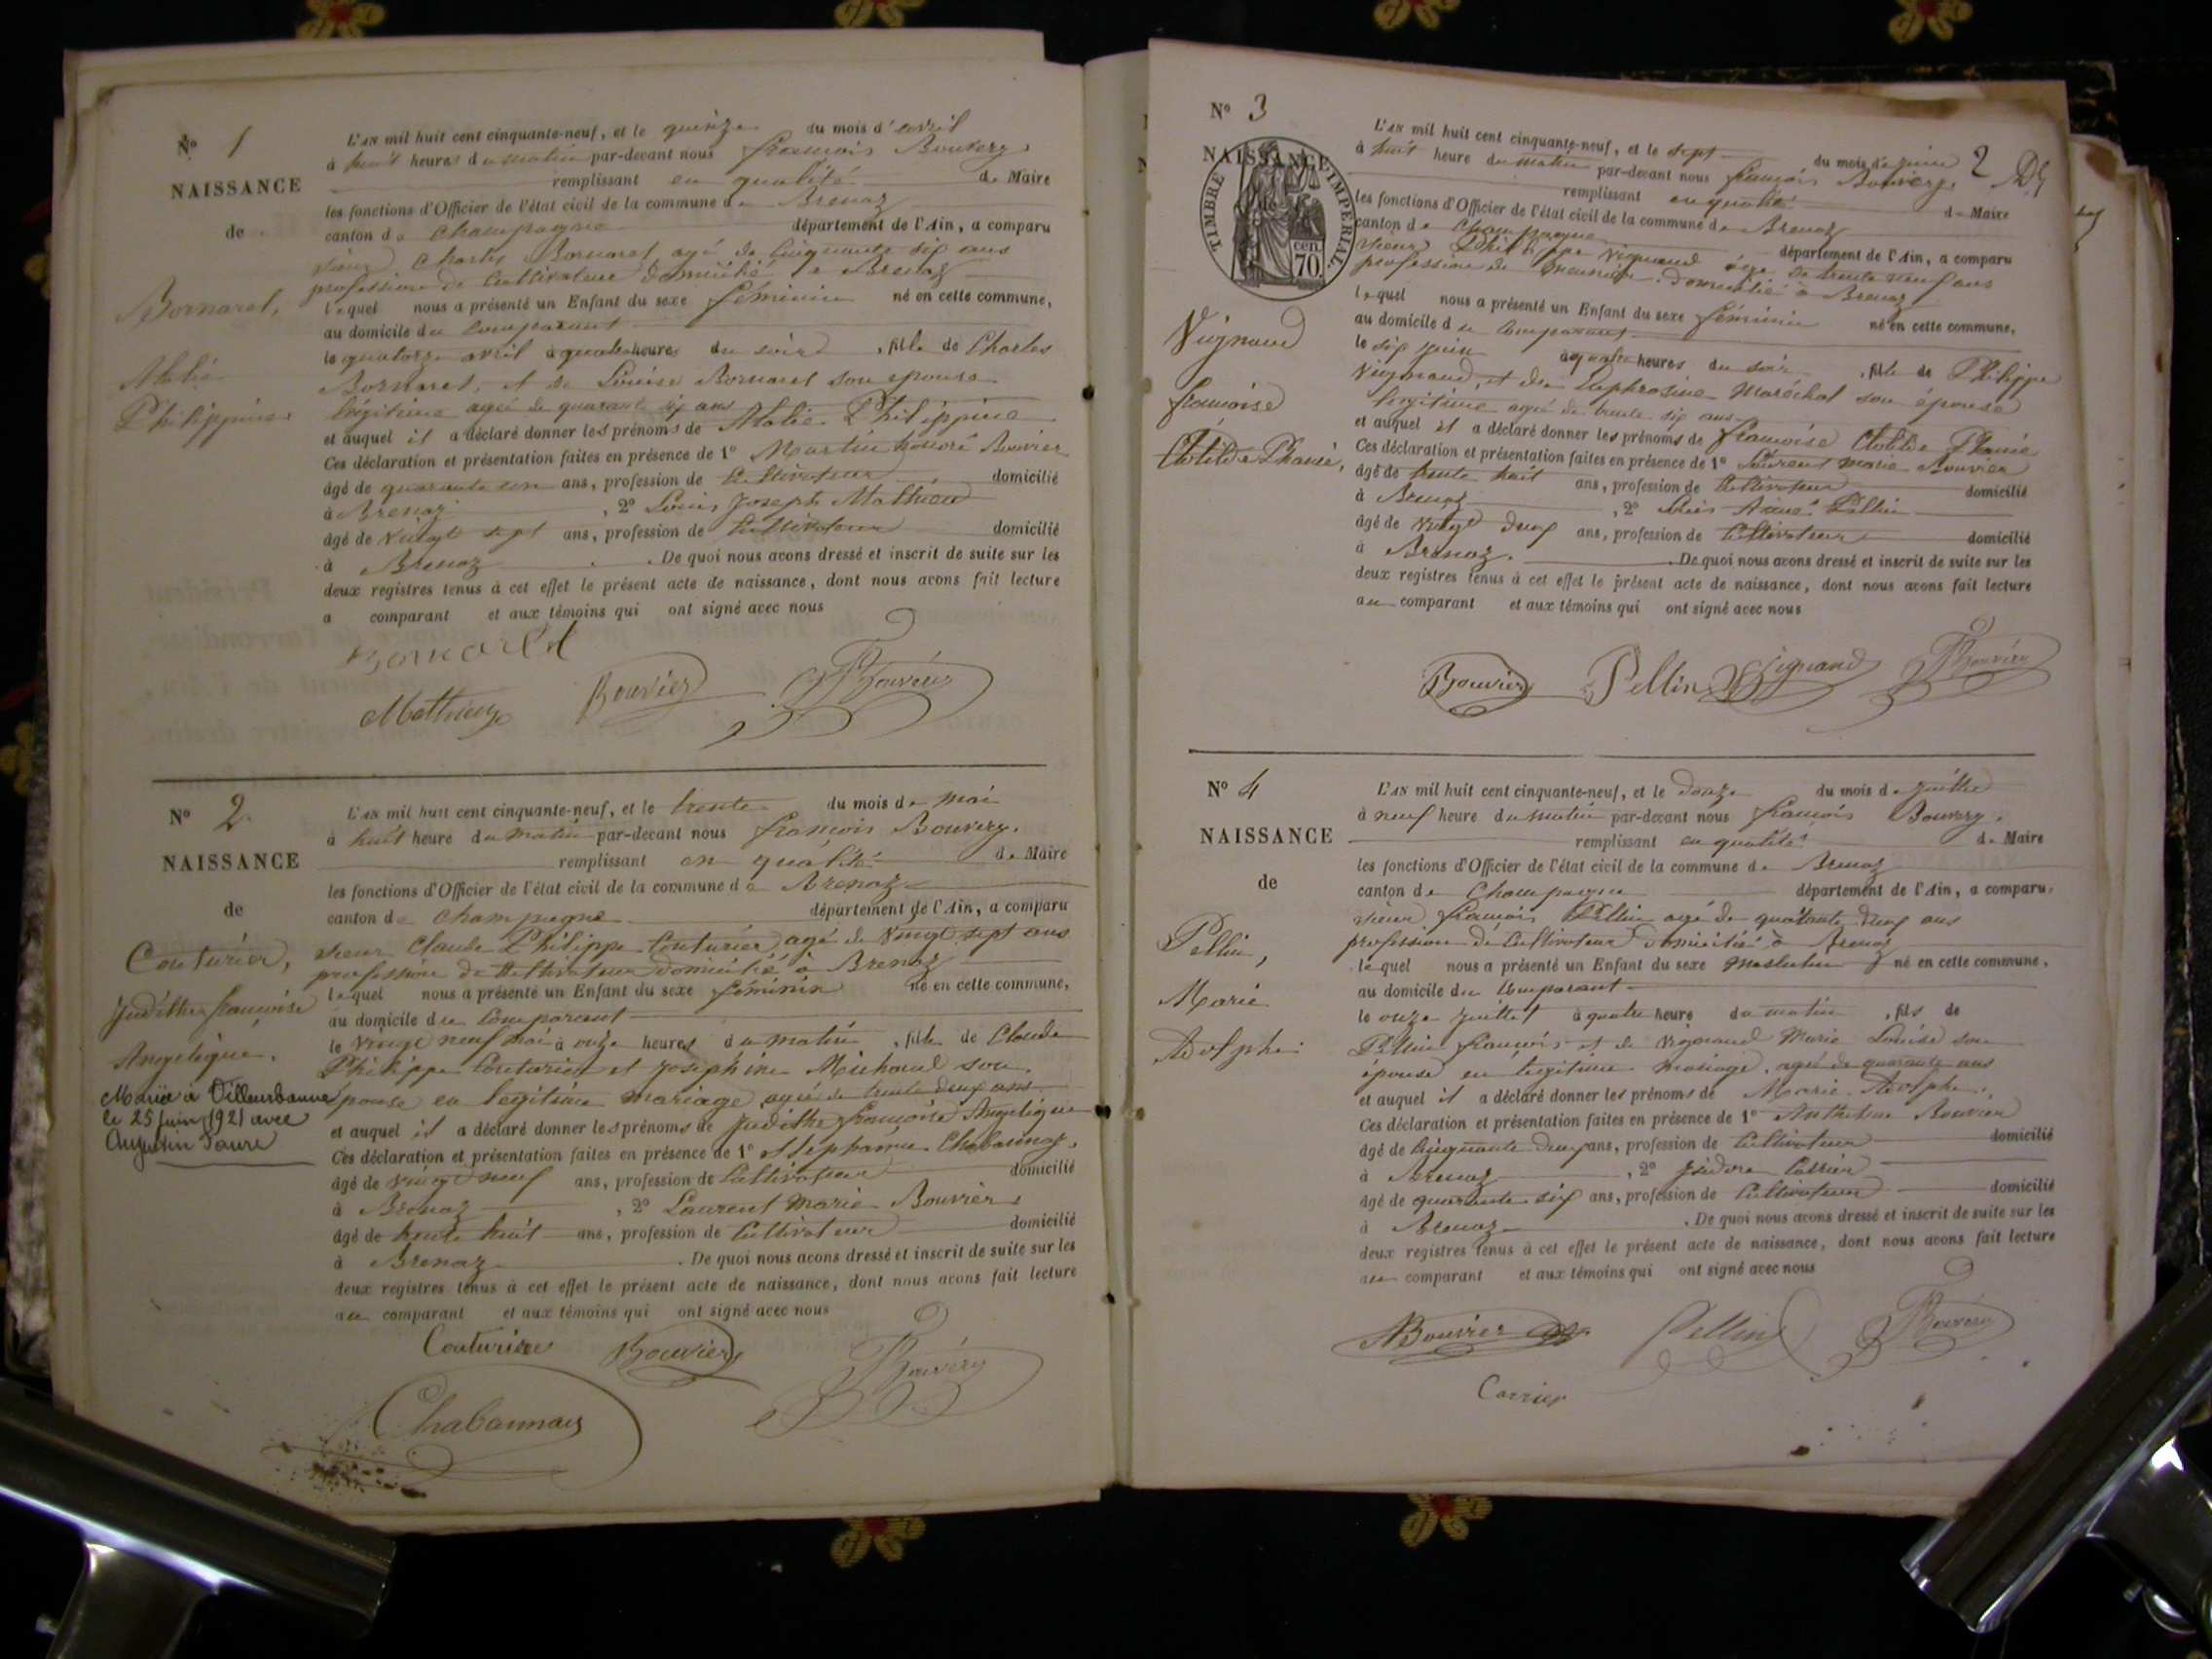 N° 1
NAISSANCE
de
Bornaret,
Philippine
L'AN mil huit cent cinquante-neuf, et le quinze du mois d'avril
à huit heures du matin par-devant nous françois Bouvery
remplissant en qualité de Maire
les fonctions d'Officier de l'état civil de la commune de Brenaz
canton de Champagne département de l'Ain, a comparu
sieur Charles Bornaret agé de cinquante six ans
profession de Cultivateur domicilié a Brenaz
lequel nous a présenté un Enfant du sexe féminin né en cette commune,
au domicile du comparant
le quatorze avril à quatre heures du soir, fille de Charles
Bornaret, et de Louise Bornaret son epouse
légitime agée de quarante six ans
et auquel il a déclaré donner les prénoms de Philippine
Ces déclaration et présentation faites en présence de 1° Martin honoré Bouvier
âgé de quarante un ans, profession de Cultivateur domicilié
à Brenaz, 2° Louis Joseph Mathieu
âgé de vingt sept ans, profession de Cultivateur domicilié
à Brenaz. De quoi nous avons dressé et inscrit de suite sur les
deux registres tenus à cet effet le présent acte de naissance, dont nous avons fait lecture
a comparant et aux témoins qui ont signé avec nous
Bornaret
Mathieu Bouvier Bouvery
N° 2
NAISSANCE
de
Couturier,
Judithe françoise
Angelique.
Mariée à Villeurbanne
le 25 juin 1921 avec
Augustin Faure
L'AN mil huit cent cinquante-neuf, et le trente du mois de mai
à huit heure du matin par-devant nous françois Bouvery.
remplissant en qualité de Maire
les fonctions d'Officier de l'état civil de la commune de Brenaz
canton de Champagne département de l'Ain, a comparu
sieur Claude Philippe Couturier agé de vingt sept ans
profession de Cultivateur domicilié à Brenaz
lequel nous a présenté un Enfant du sexe féminin né en cette commune,
au domicile du comparant
le vingt neuf mai à onze heures du matin, fille de Claude
Philippe Couturier et Joséphine Michaud son
épouse en legitime mariage agée de trente deux ans
et auquel il a déclaré donner les prénoms de Judithe françoise Angelique
Ces déclaration et présentation faites en présence de 1° Chabannay
âgé de vingt neuf ans, profession de Cultivateur domicilié
à Brenaz, 2° Laurent Marie Bouvier
âgé de trente huit ans, profession de Cultivateur domicilié
à Brenaz. De quoi nous avons dressé et inscrit de suite sur les
deux registres tenus à cet effet le présent acte de naissance, dont nous avons fait lecture
au comparant et aux témoins qui ont signé avec nous
Couturier Bouvier Bouvery
Chabannay
N° 3
2
NAISSANCE
TIMBRE IMPERIAL
70 cen.
Vignand
françoise
Clotilde Phanie,
L'AN mil huit cent cinquante-neuf, et le sept du mois de juin
à huit heure du matin par-devant nous françois Bouvery
remplissant en qualité de Maire
les fonctions d'Officier de l'état civil de la commune de Brenaz
canton de Champagne département de l'Ain, a comparu
sieur Philippe Vignand âgé de trente neuf ans
profession de domicilié à Brenaz
lequel nous a présenté un Enfant du sexe féminin né en cette commune,
au domicile du comparant
le six juin à quatre heures du soir, fille de Philippe
Vignand, et de Euphrosine Maréchal son épouse
legitime agée de trente six ans
et auquel il a déclaré donner les prénoms de françoise Clotilde Phanie
Ces déclaration et présentation faites en présence de 1° Laurent Marie Bouvier
âgé de trente huit ans, profession de Cultivateur domicilié
à Brenaz, 2° Louis Aimé Pellin
âgé de vingt deux ans, profession de Cultivateur domicilié
à Brenaz. De quoi nous avons dressé et inscrit de suite sur les
deux registres tenus à cet effet le présent acte de naissance, dont nous avons fait lecture
au comparant et aux témoins qui ont signé avec nous
Bouvier Pellin Vignand Bouvery
N° 4
NAISSANCE
de
Pellin,
Marie
Adolphe
L'AN mil huit cent cinquante-neuf, et le douze du mois de juillet
à neuf heure du matin par-devant nous françois Bouvery.
remplissant en qualité de Maire
les fonctions d'Officier de l'état civil de la commune de Brenaz
canton de Champagne département de l'Ain, a comparu
sieur françois Pellin agé de quarante deux ans
profession de Cultivateur domicilié à Brenaz
lequel nous a présenté un Enfant du sexe masculin né en cette commune,
au domicile du comparant
le onze juillet à quatre heure du matin, fils de
Pellin françois et de Vignand Marie Louise son
épouse en legitime mariage, agée de quarante ans
et auquel il a déclaré donner les prénoms de Marie Adolphe.
Ces déclaration et présentation faites en présence de 1° Anthelme Bouvier
âgé de cinquante deux ans, profession de Cultivateur domicilié
à Brenaz, 2° Isidore Carrier
âgé de quarante six ans, profession de Cultivateur domicilié
à Brenaz. De quoi nous avons dressé et inscrit de suite sur les
deux registres tenus à cet effet le présent acte de naissance, dont nous avons fait lecture
au comparant et aux témoins qui ont signé avec nous
ABouvier Pellin Bouvery
Carrier